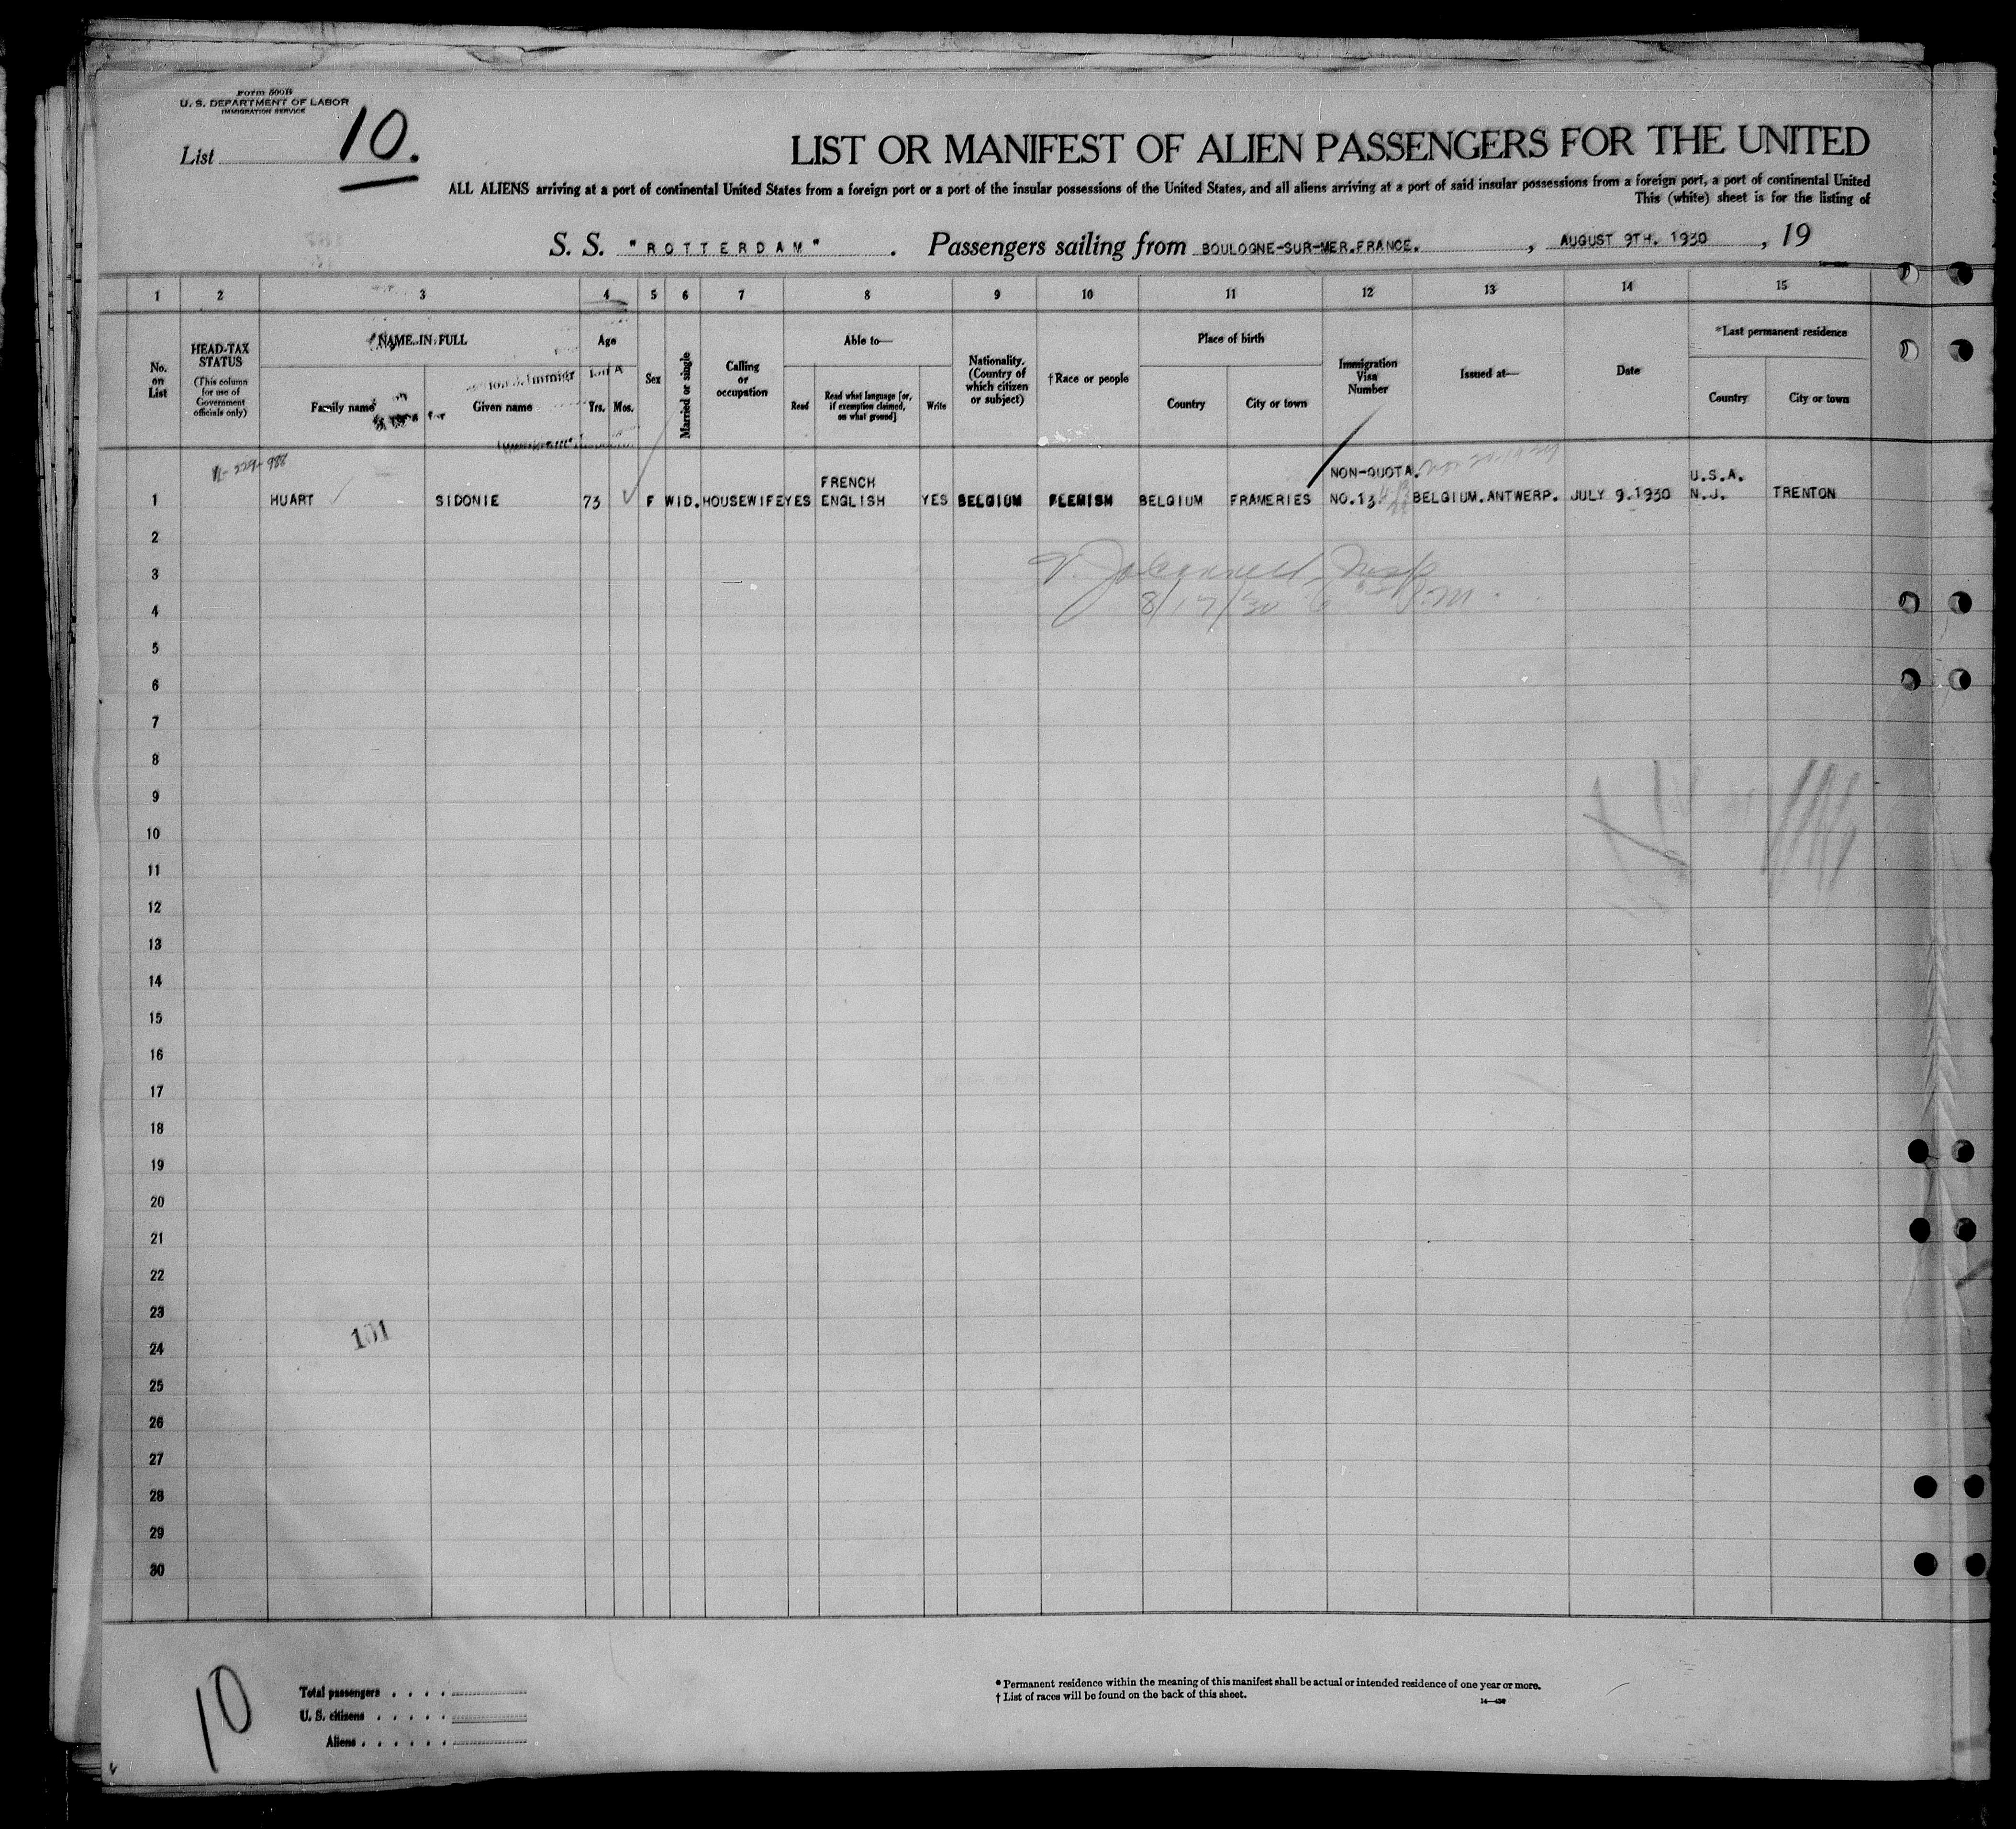 Form 500B
U. S. DEPARTMENT OF LABOR
IMMIGRATION SERVICE
List 10.
LIST OR MANIFEST OF ALIEN PASSENGERS FOR THE UNITED
ALL ALIENS arriving at a port of continental United States from a foreign port or a port of the insular possessions of the United States, and all aliens arriving at a port of said insular possessions from a foreign port, a port of continental United
This (white) sheet is for the listing of
S. S. "ROTTERDAM" . Passengers sailing from BOULOGNE-SUR-MER.FRANCE. , AUGUST 9TH. 1930 , 19
1 2 3 4 5 6 7 8 9 10 11 12 13 14 15
No. on List
HEAD-TAX STATUS
(This column for use of Government officials only)
NAME IN FULL
Family name
Given name
Age
Yrs. Mos.
Sex
Married or single
Calling or occupation
Able to—
Read
Read what language [or, if exemption claimed, on what ground]
Write
Nationality. (Country of which citizen or subject)
†Race or people
Place of birth
Country
City or town
Immigration Visa Number
Issued at—
Date
*Last permanent residence
Country
City or town
FRENCH NON-QUOTA. U.S.A.
1 HUART SIDONIE 73 F WID. HOUSEWIFE YES ENGLISH YES BELGIUM FLEMISH BELGIUM FRAMERIES NO.13 BELGIUM.ANTWERP. JULY 9.1930 N.J. TRENTON
2
3
8/17/30
4
5
6
7
8
9
10
11
12
13
14
15
16
17
18
19
20
21
22
23
101
24
25
26
27
28
29
30
10
Total passengers . . . .
U. S. citizens . . . . .
Aliens . . . . . .
* Permanent residence within the meaning of this manifest shall be actual or intended residence of one year or more.
† List of races will be found on the back of this sheet.